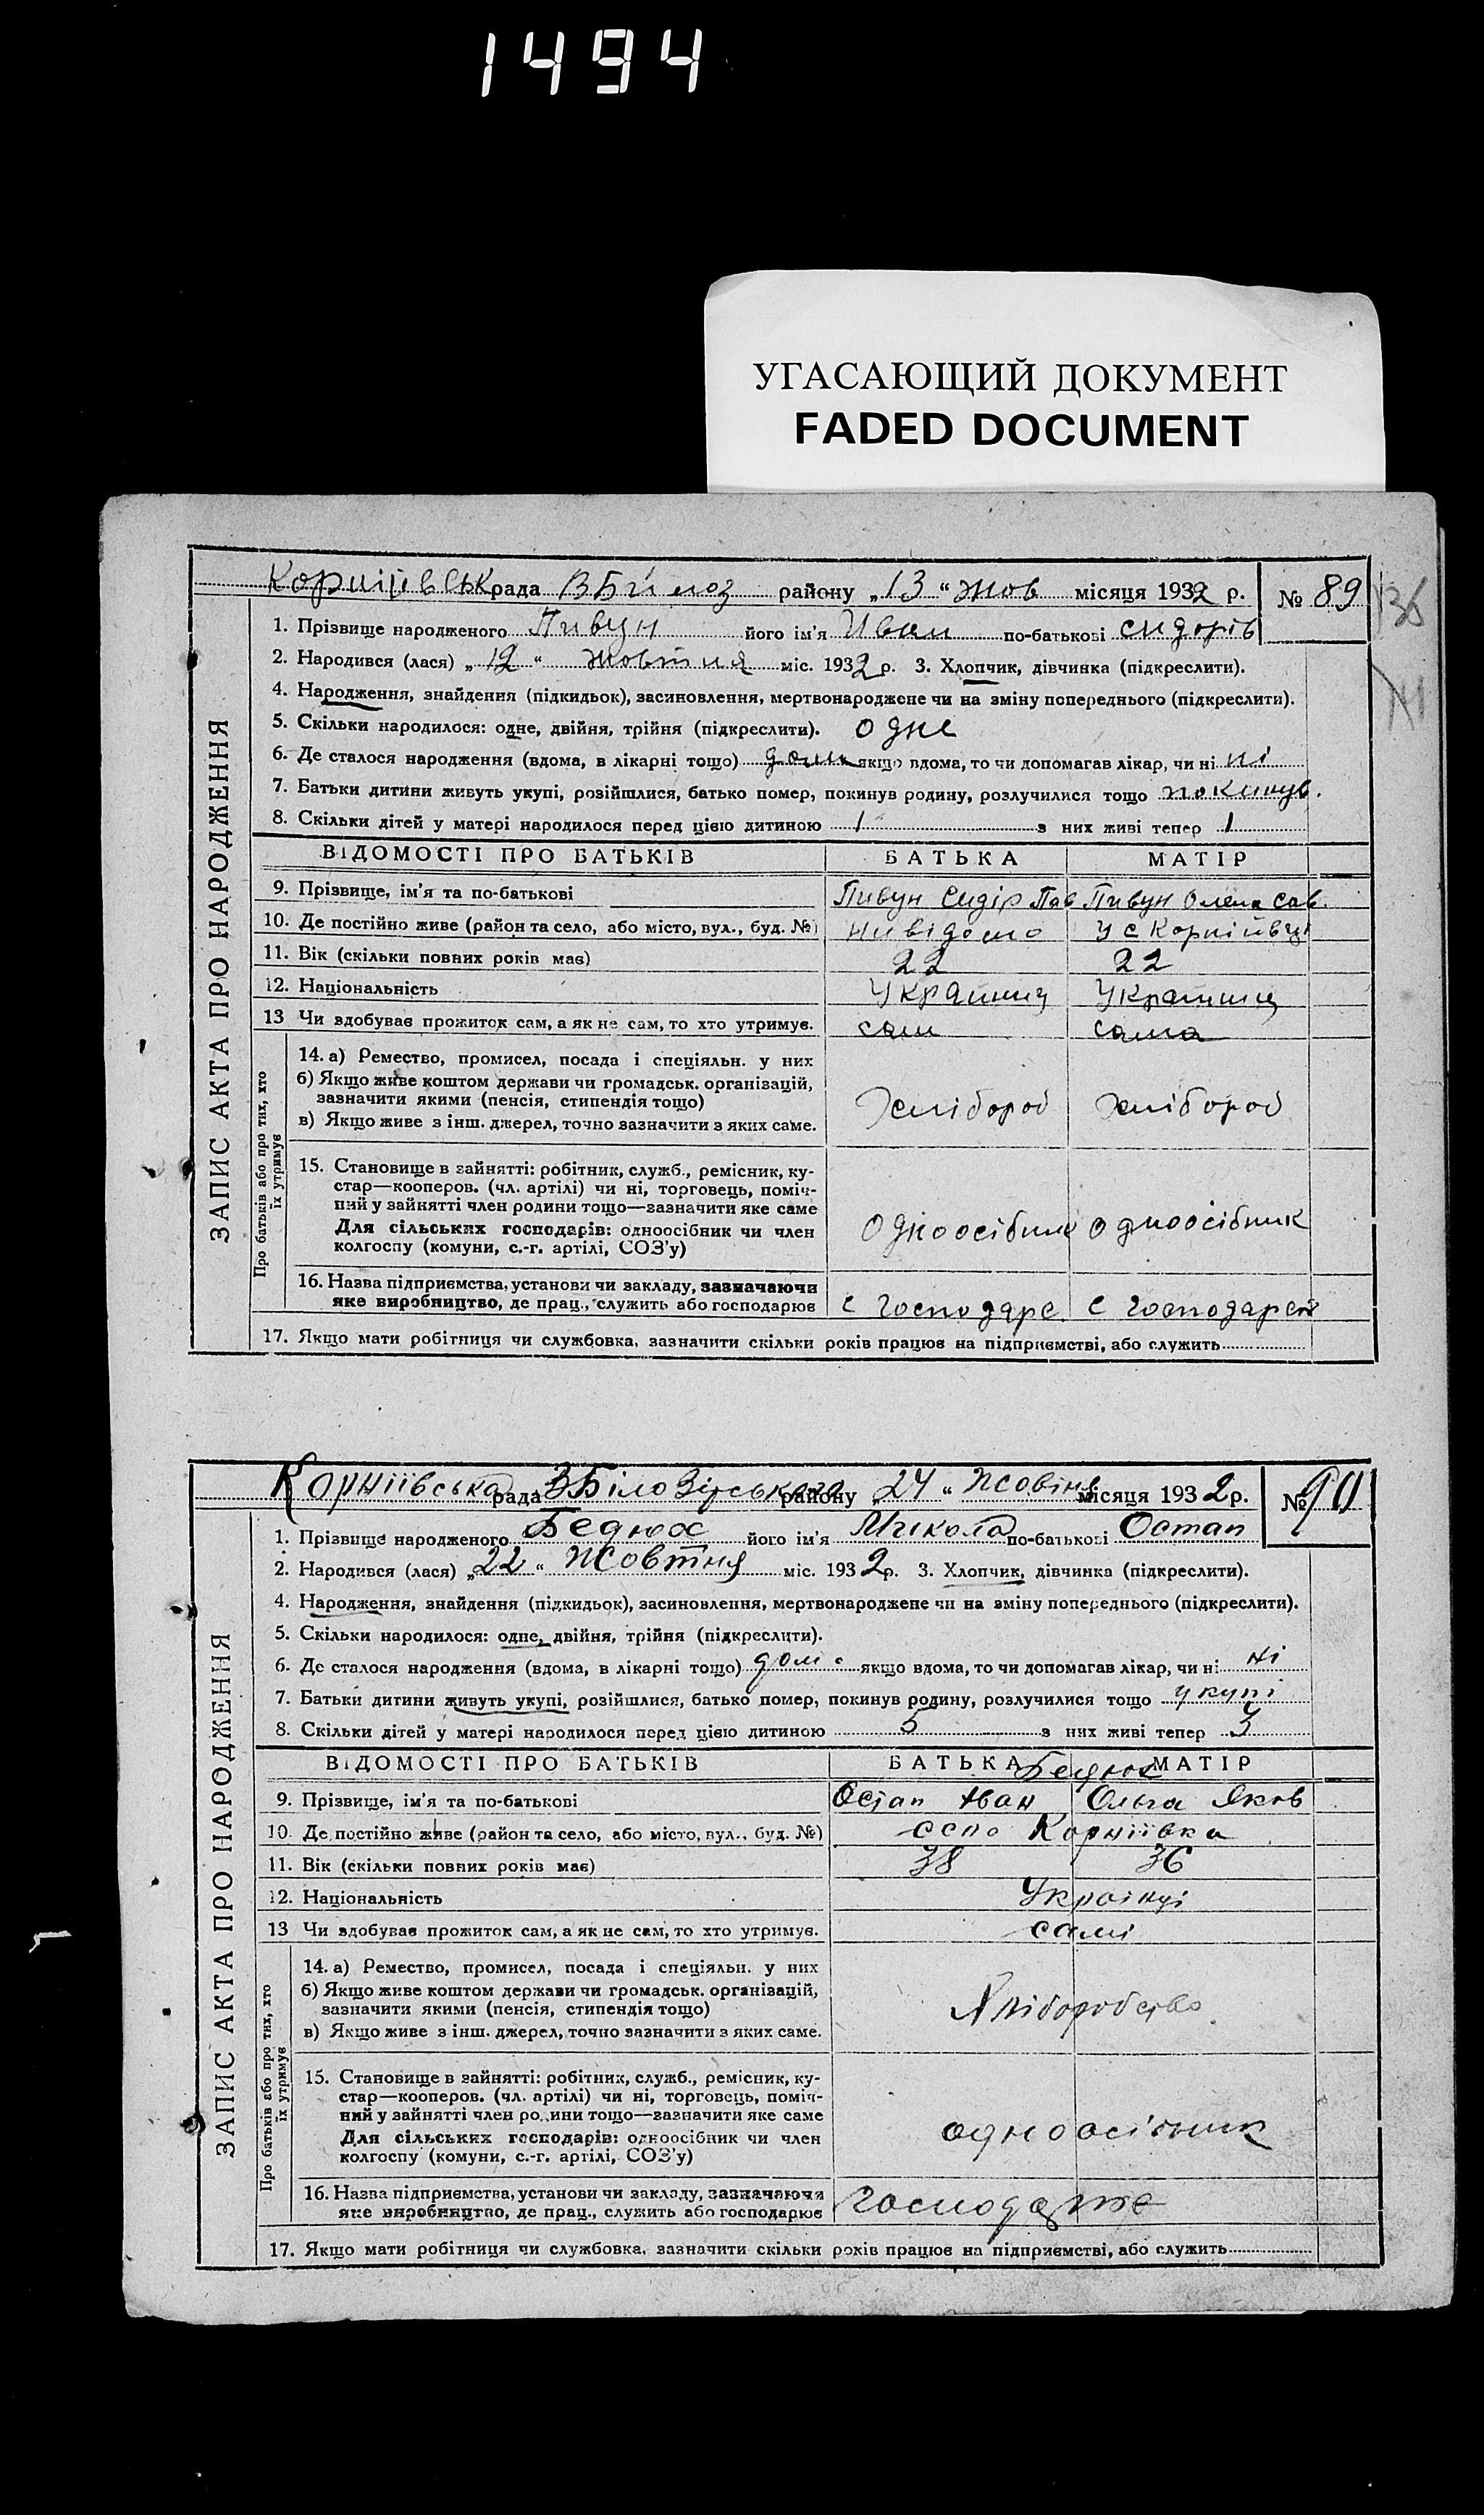 1494
УГАСАЮЩИЙ ДОКУМЕНТ
FADED DOCUMENT
ЗАПИС АКТА ПРО НАРОДЖЕННЯ
рада району „13“ Жов місяця 1932 р. № 89
1. Прізвище народженого Пивун його ім'я Иван по-батькові Сидорів
2. Народився (лася) „12“ жовтня міс. 1932 р. 3. Хлопчик, дівчинка (підкреслити).
4. Народження, знайдення (підкидьок), засиновлення, мертвонароджене чи на зміну попереднього (підкреслити).
5. Скільки народилося: одне, двійня, трійня (підкреслити). одне
6. Де сталося народження (вдома, в лікарні тощо) якщо вдома, то чи допомагав лікар, чи ні ні
7. Батьки дитини живуть укупі, розійшлися, батько помер, покинув родину, розлучилися тощо покинув.
8. Скільки дітей у матері народилося перед цією дитиною 1 з них живі тепер 1
ВІДОМОСТІ ПРО БАТЬКІВ БАТЬКА МАТІР
9. Прізвище, ім'я та по-батькові Пивун Сидір Пав Пивун Олена Сав.
10. Де постійно живе (район та село, або місто, вул., буд. №) нивідомо у с Корніївці
11. Вік (скільки повних років має) 22 22
12. Національність
13 Чи здобуває прожиток сам, а як не сам, то хто утримує. сам сама
Про батьків або про тих, хто їх утримує
14. а) Ремество, промисел, посада і спеціяльн. у них
б) Якщо живе коштом держави чи громадськ. організацій,
зазначити якими (пенсія, стипендія тощо)
в) Якщо живе з інш. джерел, точно зазначити з яких саме.
хлібороб хлібороб
15. Становище в зайнятті: робітник, служб., ремісник, ку-
стар—кооперов. (чл. артілі) чи ні, торговець, поміч-
ний у зайнятті член родини тощо—зазначити яке саме
Для сільських господарів: одноосібник чи член
колгоспу (комуни, с.-г. артілі, СОЗ'у)
одноосібник одноосібник
16. Назва підприємства, установи чи закладу, зазначаючи
яке виробництво, де прац., служить або господарює с господарс
17. Якщо мати робітниця чи службовка, зазначити скільки років працює на підприємстві, або служить
ЗАПИС АКТА ПРО НАРОДЖЕННЯ
Корніївська рада З Білозірського району „24“ місяця 1932 р. № 90
1. Прізвище народженого Бедюх його ім'я Микола по-батькові Остап
2. Народився (лася) „22“ Жовтня міс. 1932 р. 3. Хлопчик, дівчинка (підкреслити).
4. Народження, знайдення (підкидьок), засиновлення, мертвонароджене чи на зміну попереднього (підкреслити).
5. Скільки народилося: одне, двійня, трійня (підкреслити).
6. Де сталося народження (вдома, в лікарні тощо) якщо вдома, то чи допомагав лікар, чи ні ні
7. Батьки дитини живуть укупі, розійшлися, батько помер, покинув родину, розлучилися тощо укупі
8. Скільки дітей у матері народилося перед цією дитиною 5 з них живі тепер 3
ВІДОМОСТІ ПРО БАТЬКІВ БАТЬКА МАТІР
Бедюх
9. Прізвище, ім'я та по-батькові Остап Іван Ольга Яков
10. Де постійно живе (район та село, або місто, вул., буд. №) село Корніївка
11. Вік (скільки повних років має) 38 36
12. Національність Українці
13 Чи здобуває прожиток сам, а як не сам, то хто утримує. самі
Про батьків або про тих, хто їх утримує
14. а) Ремество, промисел, посада і спеціяльн. у них
б) Якщо живе коштом держави чи громадськ. організацій,
зазначити якими (пенсія, стипендія тощо)
в) Якщо живе з інш. джерел, точно зазначити з яких саме.
Хліборобство
15. Становище в зайнятті: робітник, служб., ремісник, ку-
стар—кооперов. (чл. артілі) чи ні, торговець, поміч-
ний у зайнятті член родини тощо—зазначити яке саме
Для сільських господарів: одноосібник чи член
колгоспу (комуни, с.-г. артілі, СОЗ'у)
одноосібник
16. Назва підприємства, установи чи закладу, зазначаючи
яке виробництво, де прац., служить або господарює
17. Якщо мати робітниця чи службовка, зазначити скільки років працює на підприємстві, або служить